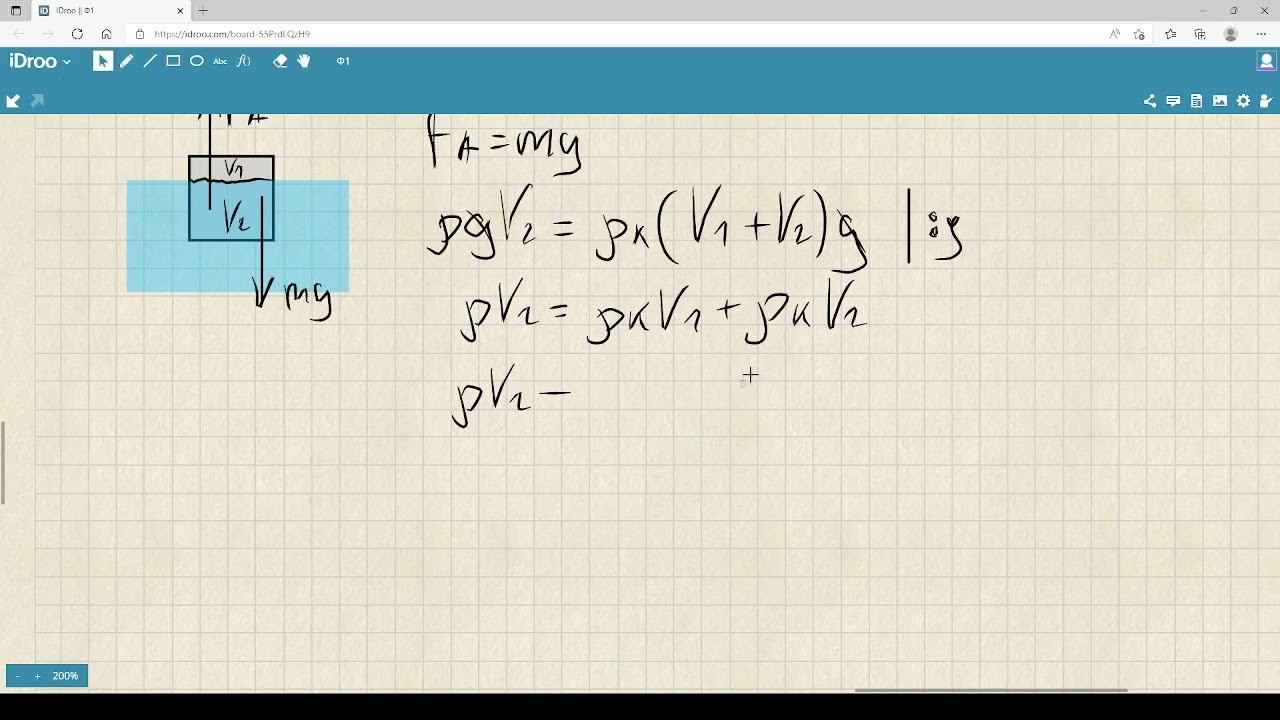 iDroo || Ф1
https://idroo.com/board-55PrdLQzH9
iDroo
Abc
f()
Ф1
FA = mg
V1
V2
mg
ρgV2 = ρк(V1 + V2)g | :g
ρV2 = ρкV1 + ρкV2
ρV2 −
- + 200%